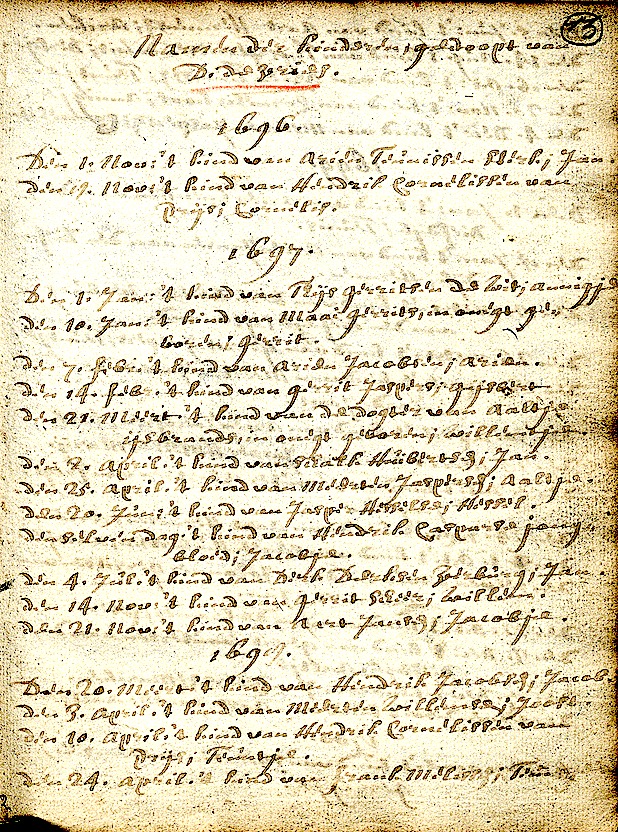 13
Namen der kinderen, gedoopt van
D. de Vries.
1696.
Den 1. Nov: 't kind van Arien Teunissen Klerk; Jan.
den 11. Nov: 't kind van Hendrik Cornelissen van
Drijs; Cornelis.
1697.
Den 1. Jan: 't kind van Thijs Gerritsen de Wit; Annigje
den 10. Jan: 't kind van Maai Gerrits, in onegt ge-
boren; Gerrit.
den 7. Febr: 't kind van Arien Jacobsen; Arien.
den 14. Febr: 't kind van Gerrit Jaspers; Gijsbert
den 21. Meert 't kind van de dogter van Aaltje
Ijsbrands, in onegt geboren; Willemtje.
den 2. April. 't kind van Huibertsz; Jan.
den 25. April. 't kind van Meerten Jaspersz; Aaltje.
den 20. Juni 't kind van Jasper Hesselsz; Hessel.
den selven dag 't kind van Hendrik Caspars de jong
bloed; Jacobje.
den 4. Jul. 't kind van Derk Derksen Verburg; Jan.
den 14. Nov: 't kind van Gerrit Scheer; Willem.
den 21. Nov: 't kind van Aert Jansz; Jacobje.
1699.
Den 20. Meert 't kind van Hendrik Jacobsz; Jacob.
den 3. April. 't kind van Meerten Willemsz;
den 10. April. 't kind van Hendrik Cornelissen van
Drijs; Teuntje.
den 24. April. 't kind van Frank Melisz;